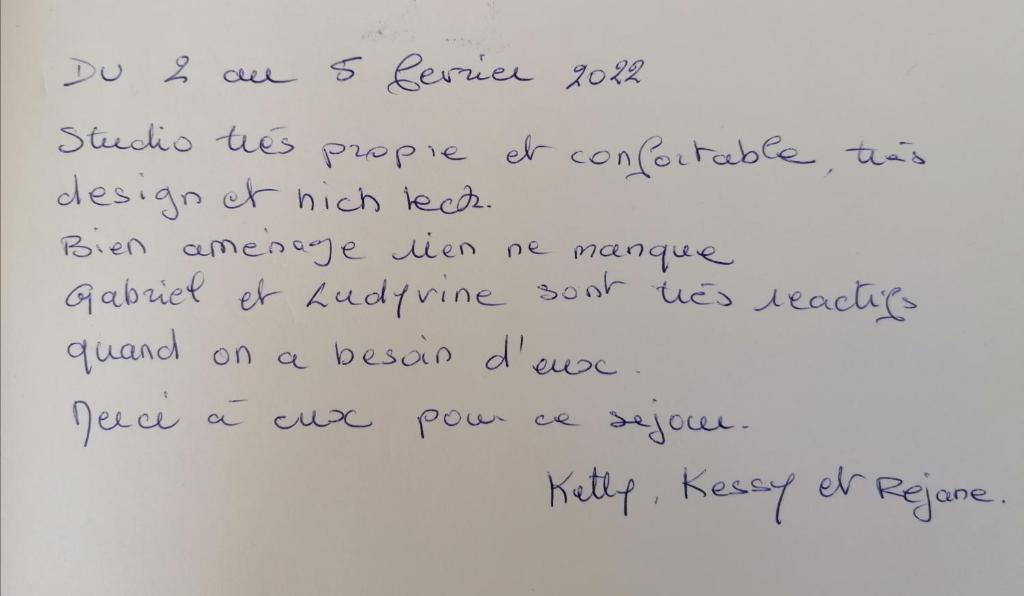 DU 2 au 5 fevrier 2022
Studio trés propre et confortable, trés
design et hich teck.
Bien aménage rien ne manque
Gabriel et Ludyvine sont trés reactifs
quand on a besoin d'eux.
Merci à eux pour ce sejour.
Ketty, Kessy et Rejane.